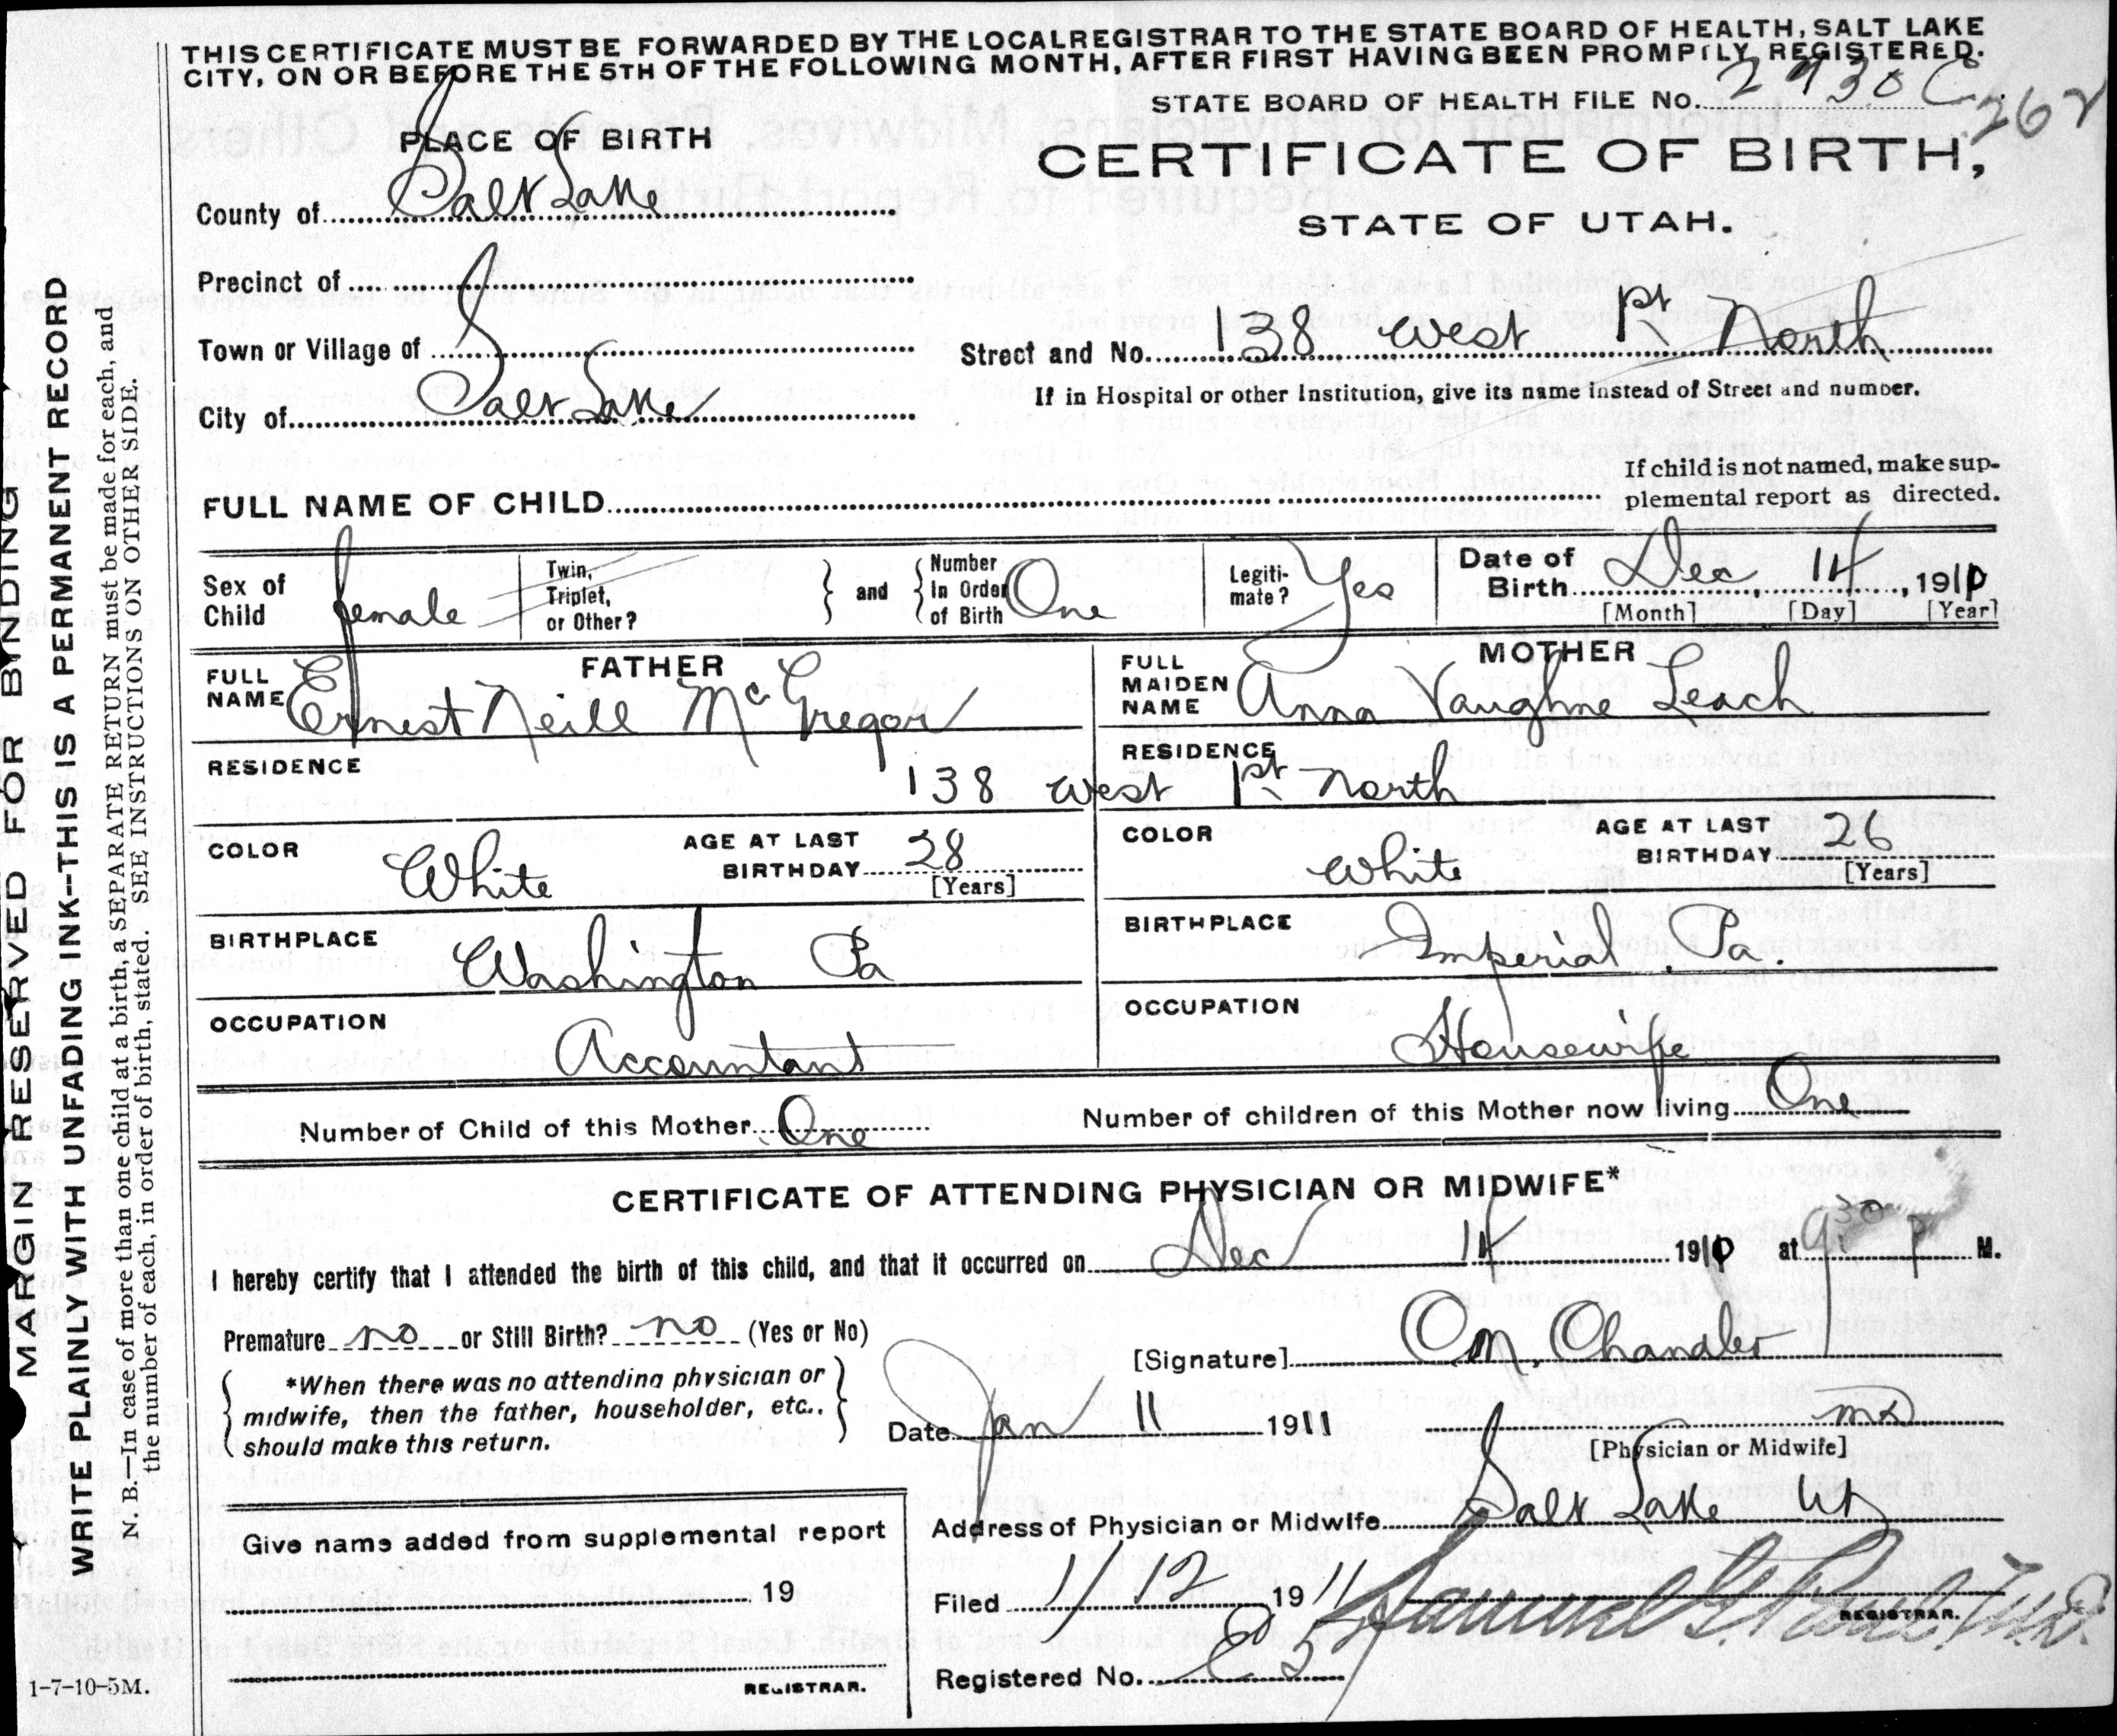 THIS CERTIFICATE MUST BE FORWARDED BY THE LOCAL REGISTRAR TO THE STATE BOARD OF HEALTH, SALT LAKE
CITY, ON OR BEFORE THE 5TH OF THE FOLLOWING MONTH, AFTER FIRST HAVING BEEN PROMPTLY REGISTERED.
STATE BOARD OF HEALTH FILE No. 2930 C
262
PLACE OF BIRTH
CERTIFICATE OF BIRTH,
STATE OF UTAH.
County of Salt Lake
Precinct of
Town or Village of
Street and No. 138 West 1st North
If in Hospital or other Institution, give its name instead of Street and number.
City of Salt Lake
If child is not named, make sup-
plemental report as directed.
FULL NAME OF CHILD
Sex of Child female
Twin, Triplet, or Other?
and
Number In Order of Birth One
Legiti-mate? Yes
Date of Birth Dec 14, 1910
[Month] [Day] [Year]
FATHER
FULL NAME Ernest Neill McGregor
MOTHER
FULL MAIDEN NAME Anna Vaughne Leach
RESIDENCE
RESIDENCE
138 West 1st North
COLOR White
AGE AT LAST BIRTHDAY 28
[Years]
COLOR White
AGE AT LAST BIRTHDAY 26
[Years]
BIRTHPLACE Washington Pa
BIRTHPLACE Imperial Pa.
OCCUPATION Accountant
OCCUPATION Housewife
Number of Child of this Mother One
Number of children of this Mother now living One
CERTIFICATE OF ATTENDING PHYSICIAN OR MIDWIFE*
I hereby certify that I attended the birth of this child, and that it occurred on Dec 14 1910 at 9 30 P M.
Premature no or Still Birth? no (Yes or No)
[Signature] O M. Chandler
*When there was no attending physician or
midwife, then the father, householder, etc.,
should make this return.
Date Jan 11 1911
MD
[Physician or Midwife]
Address of Physician or Midwife Salt Lake Ut
Give name added from supplemental report
19
REGISTRAR.
Filed 1/12 1911
Samuel G. Paul, M.D.
REGISTRAR.
Registered No.
1-7-10-5M.
MARGIN RESERVED FOR BINDING
WRITE PLAINLY WITH UNFADING INK--THIS IS A PERMANENT RECORD
N. B.—In case of more than one child at a birth, a SEPARATE RETURN must be made for each, and
the number of each, in order of birth, stated. SEE INSTRUCTIONS ON OTHER SIDE.